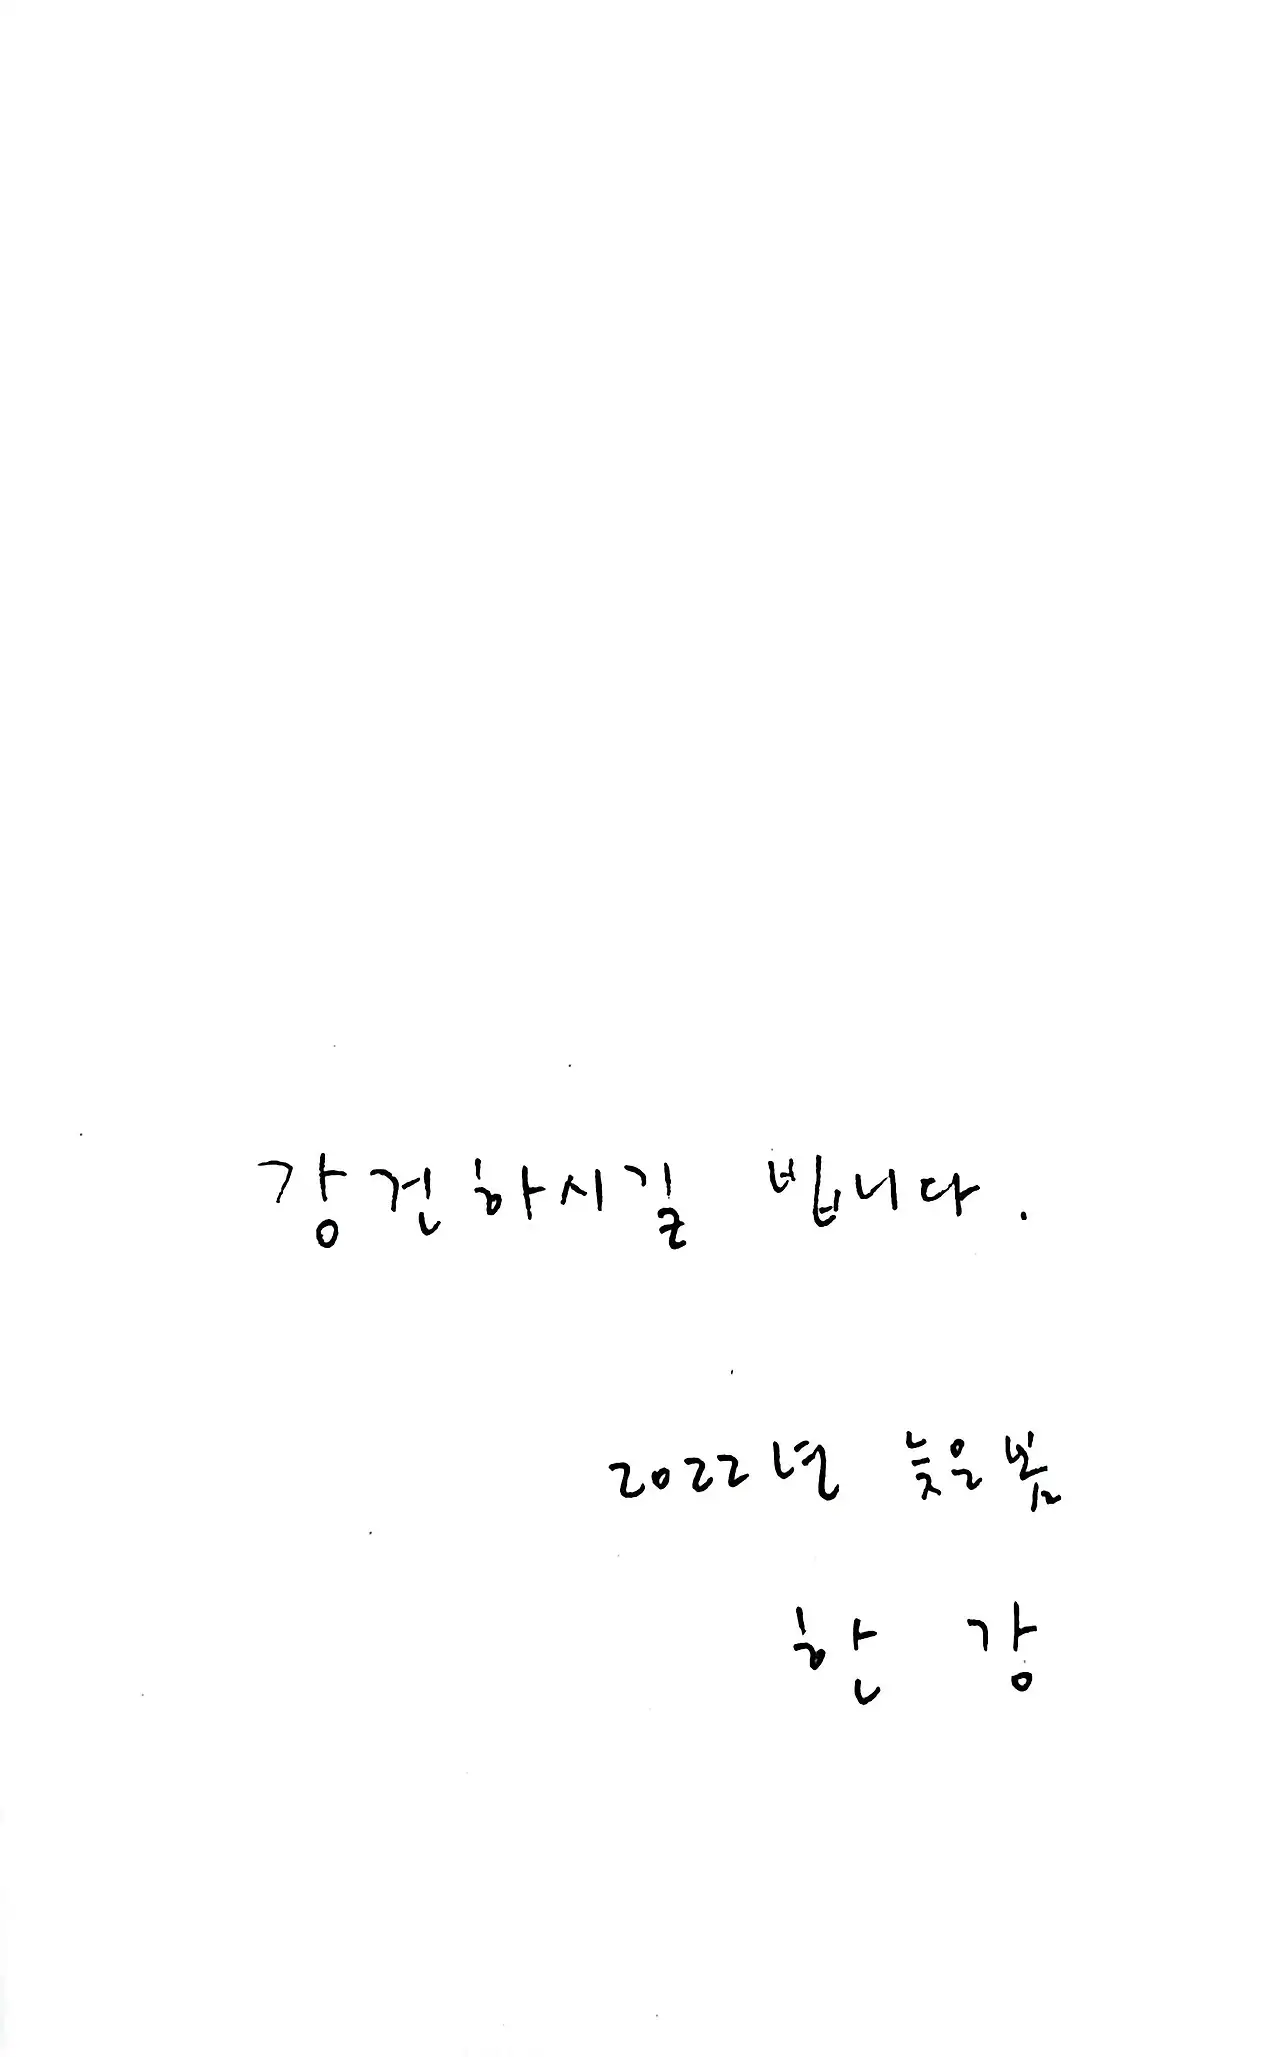 강건하시길 빕니다.
2022년 늦은 봄
한 강